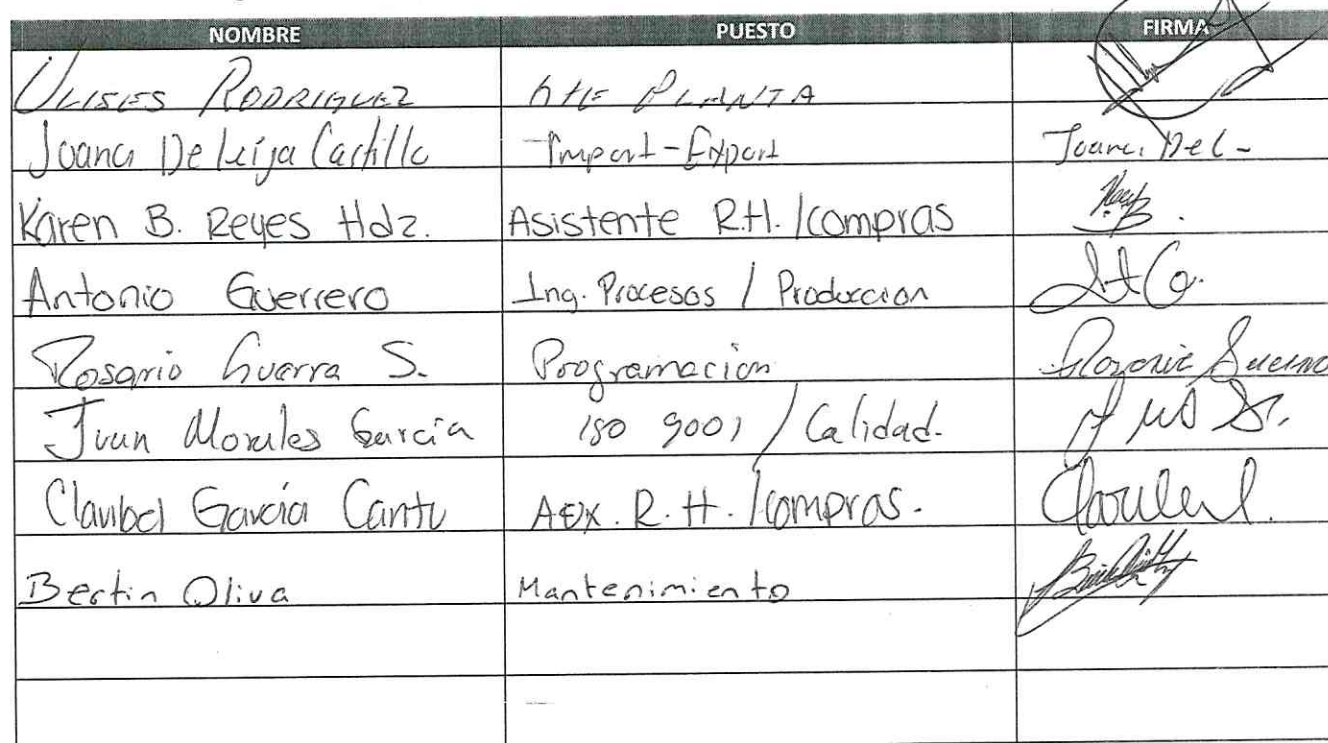 NOMBRE PUESTO FIRMA
ULISES RODRIGUEZ GTE PLANTA
Joana De Leija Castillo Import-Export Joana Del-
Karen B. Reyes Hdz. Asistente R.H. / compras
Antonio Guerrero Ing. Procesos / Produccion
Rosario Guerra S. Programacion Rosario Guerra
Juan Morales García ISO 9001 / Calidad.
Claribel García Cantu AUX. R.H. / compras.
Bertin Oliva Mantenimiento